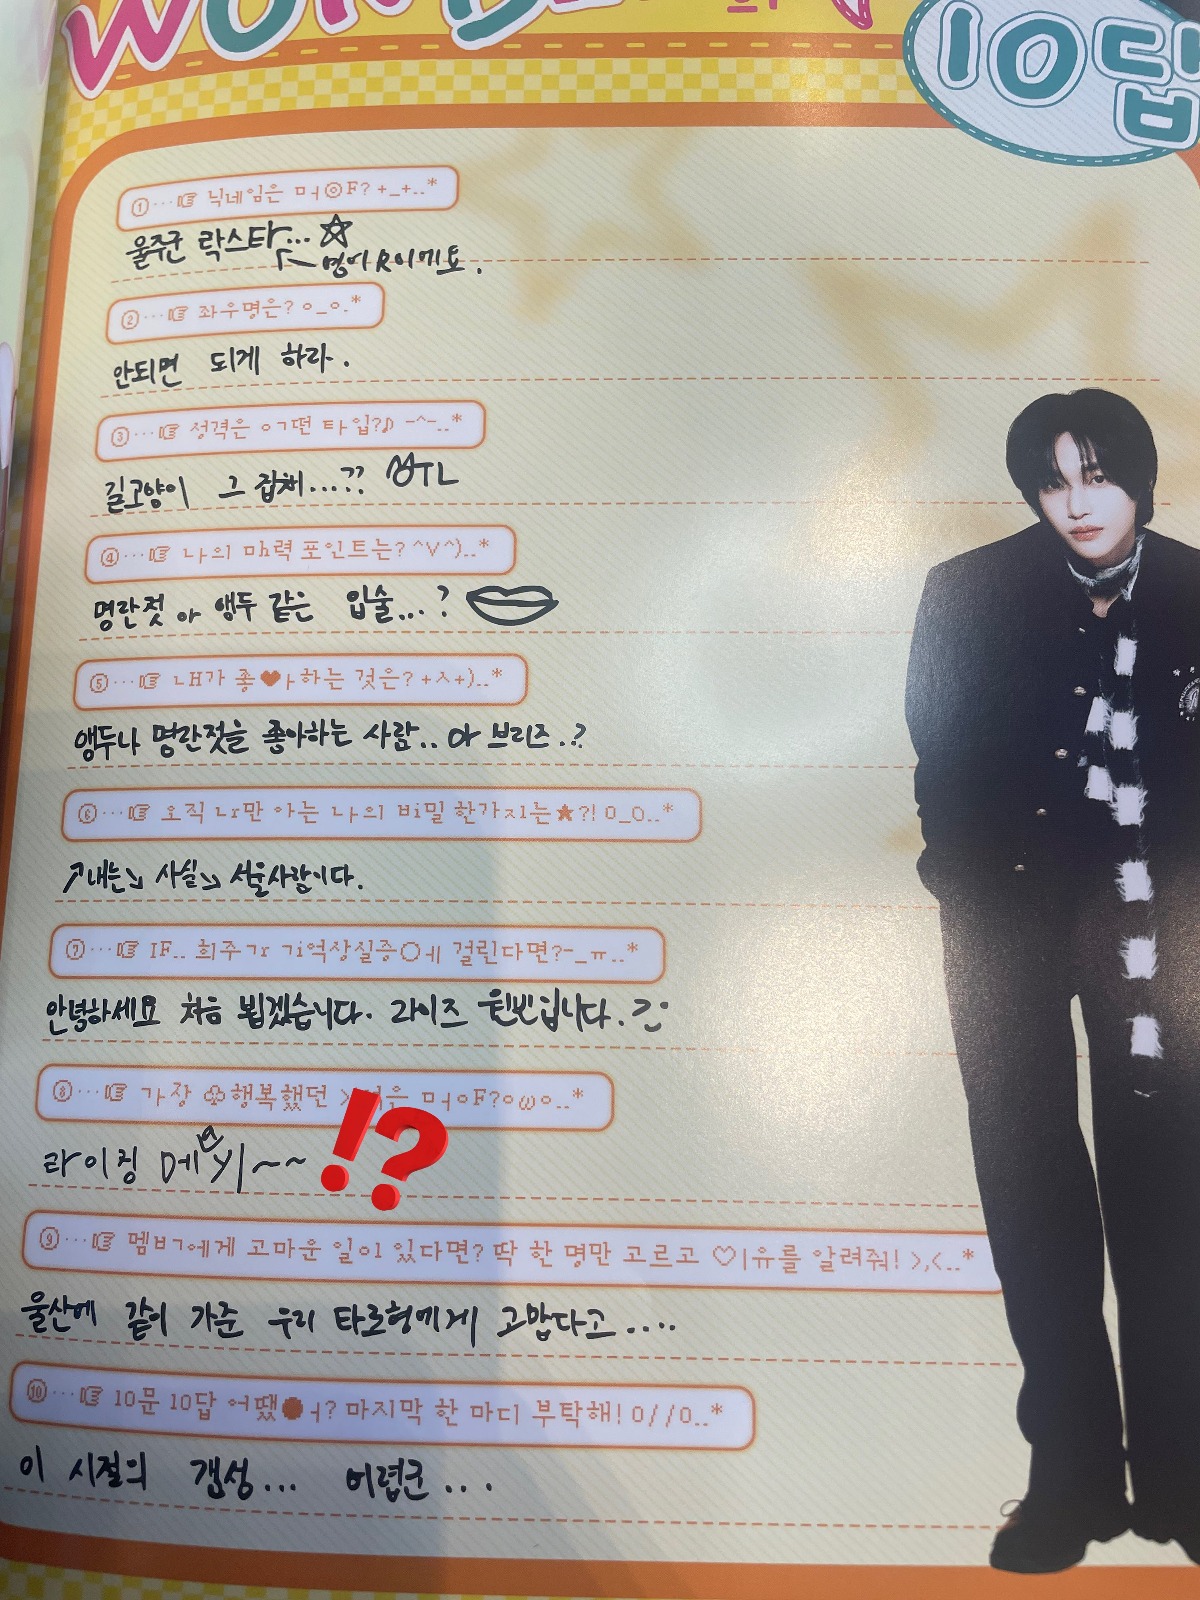 WONBIN의
10답
①…☞ 닉네임은 ㅁㅓ◎F?+_+..*
울주군 락스타…☆
영어 R이에요.
②…☞ 좌우명은?ㅇ_ㅇ.*
안되면 되게 하라.
③…☞ 성격은 ㅇㅓ떤 타입?♪ -^-..*
길고양이 그 잡채...??
④…☞ 나의 ㅁhㅕㄱ 포인트는?^V^)..*
명란젓 or 앵두 같은 입술...?
⑤…☞ ㄴH가 좋♥ㅏ하는 것은?+ㅅ+)..*
앵두나 명란젓을 좋아하는 사람.. or 브리즈..?
⑥…☞ 오직 ㄴr만 아는 나의 ㅂi밀 한가ㅈl는★?! O_O..*
↗내는↘ 사실↘ 서울사람이다.
⑦…☞ IF.. 희주ㄱr ㄱi억상실증○ㅔ 걸린다면?-_ㅠ..*
안녕하세요 처음 뵙겠습니다. 라이즈 원빈입니다.
⑧…☞ 가장 ♧행복했던 ㅁㅓㅇF?ㅇωㅇ..*
라이징 데이~~
⁉
⑨…☞ 멤ㅂㅓ에게 고마운 일이 있다면? 딱 한 명만 고르고 ♡ㅣ유를 알려줘! >,<..*
울산에 같이 가준 우리 타로형에게 고맙다고....
⑩…☞ 10문 10답 어땠●ㅓ? 마지막 한 마디 부탁해! O//O..*
이 시절의 갬성... 어렵군...